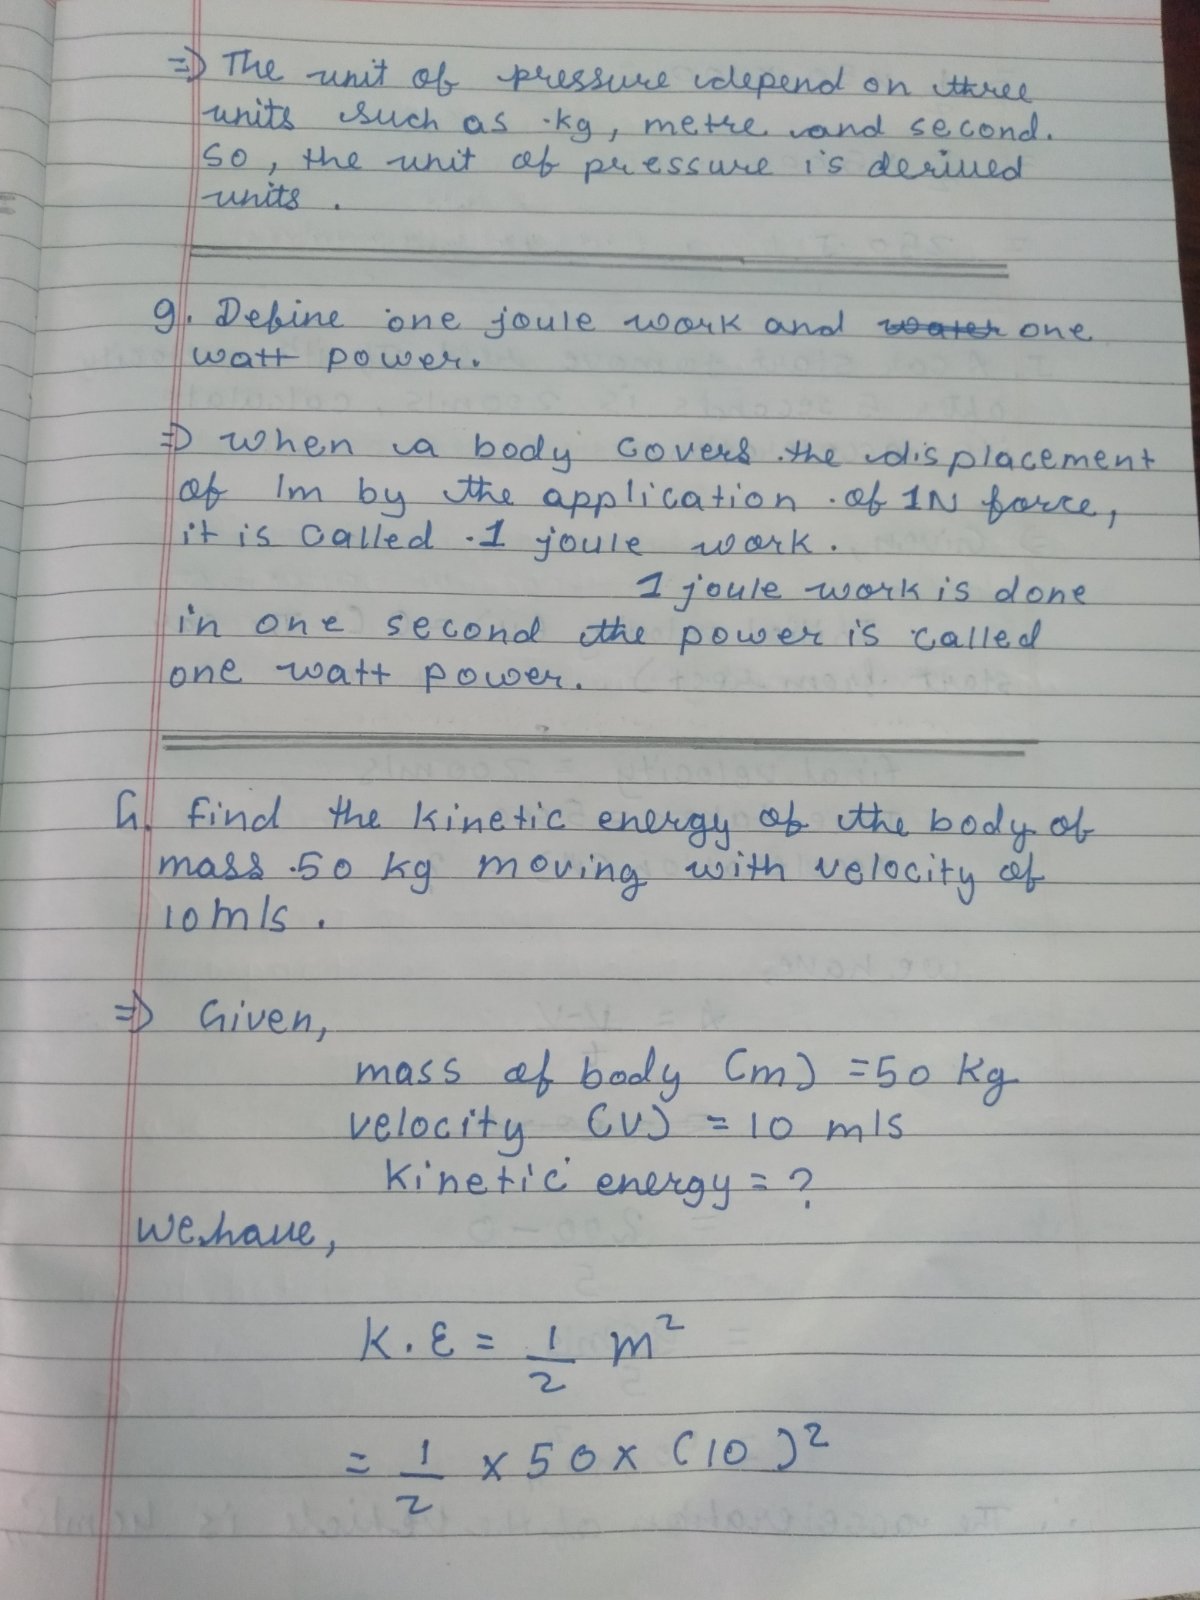 ⇒ The unit of pressure depend on three
units such as kg, metre and second.
So, the unit of pressure is derived
units.
g. Define one joule work and water one
watt power.
⇒ When a body covers the displacement
of 1m by the application of 1N force,
it is called 1 joule work.
1 joule work is done
in one second the power is called
one watt power.
G. Find the kinetic energy of the body of
mass 50 kg moving with velocity of
10 m/s.
⇒ Given,
mass of body (m) = 50 kg
velocity (v) = 10 m/s
Kinetic energy = ?
We have,
K.E = 1/2 m²
= 1/2 × 50 × (10)²